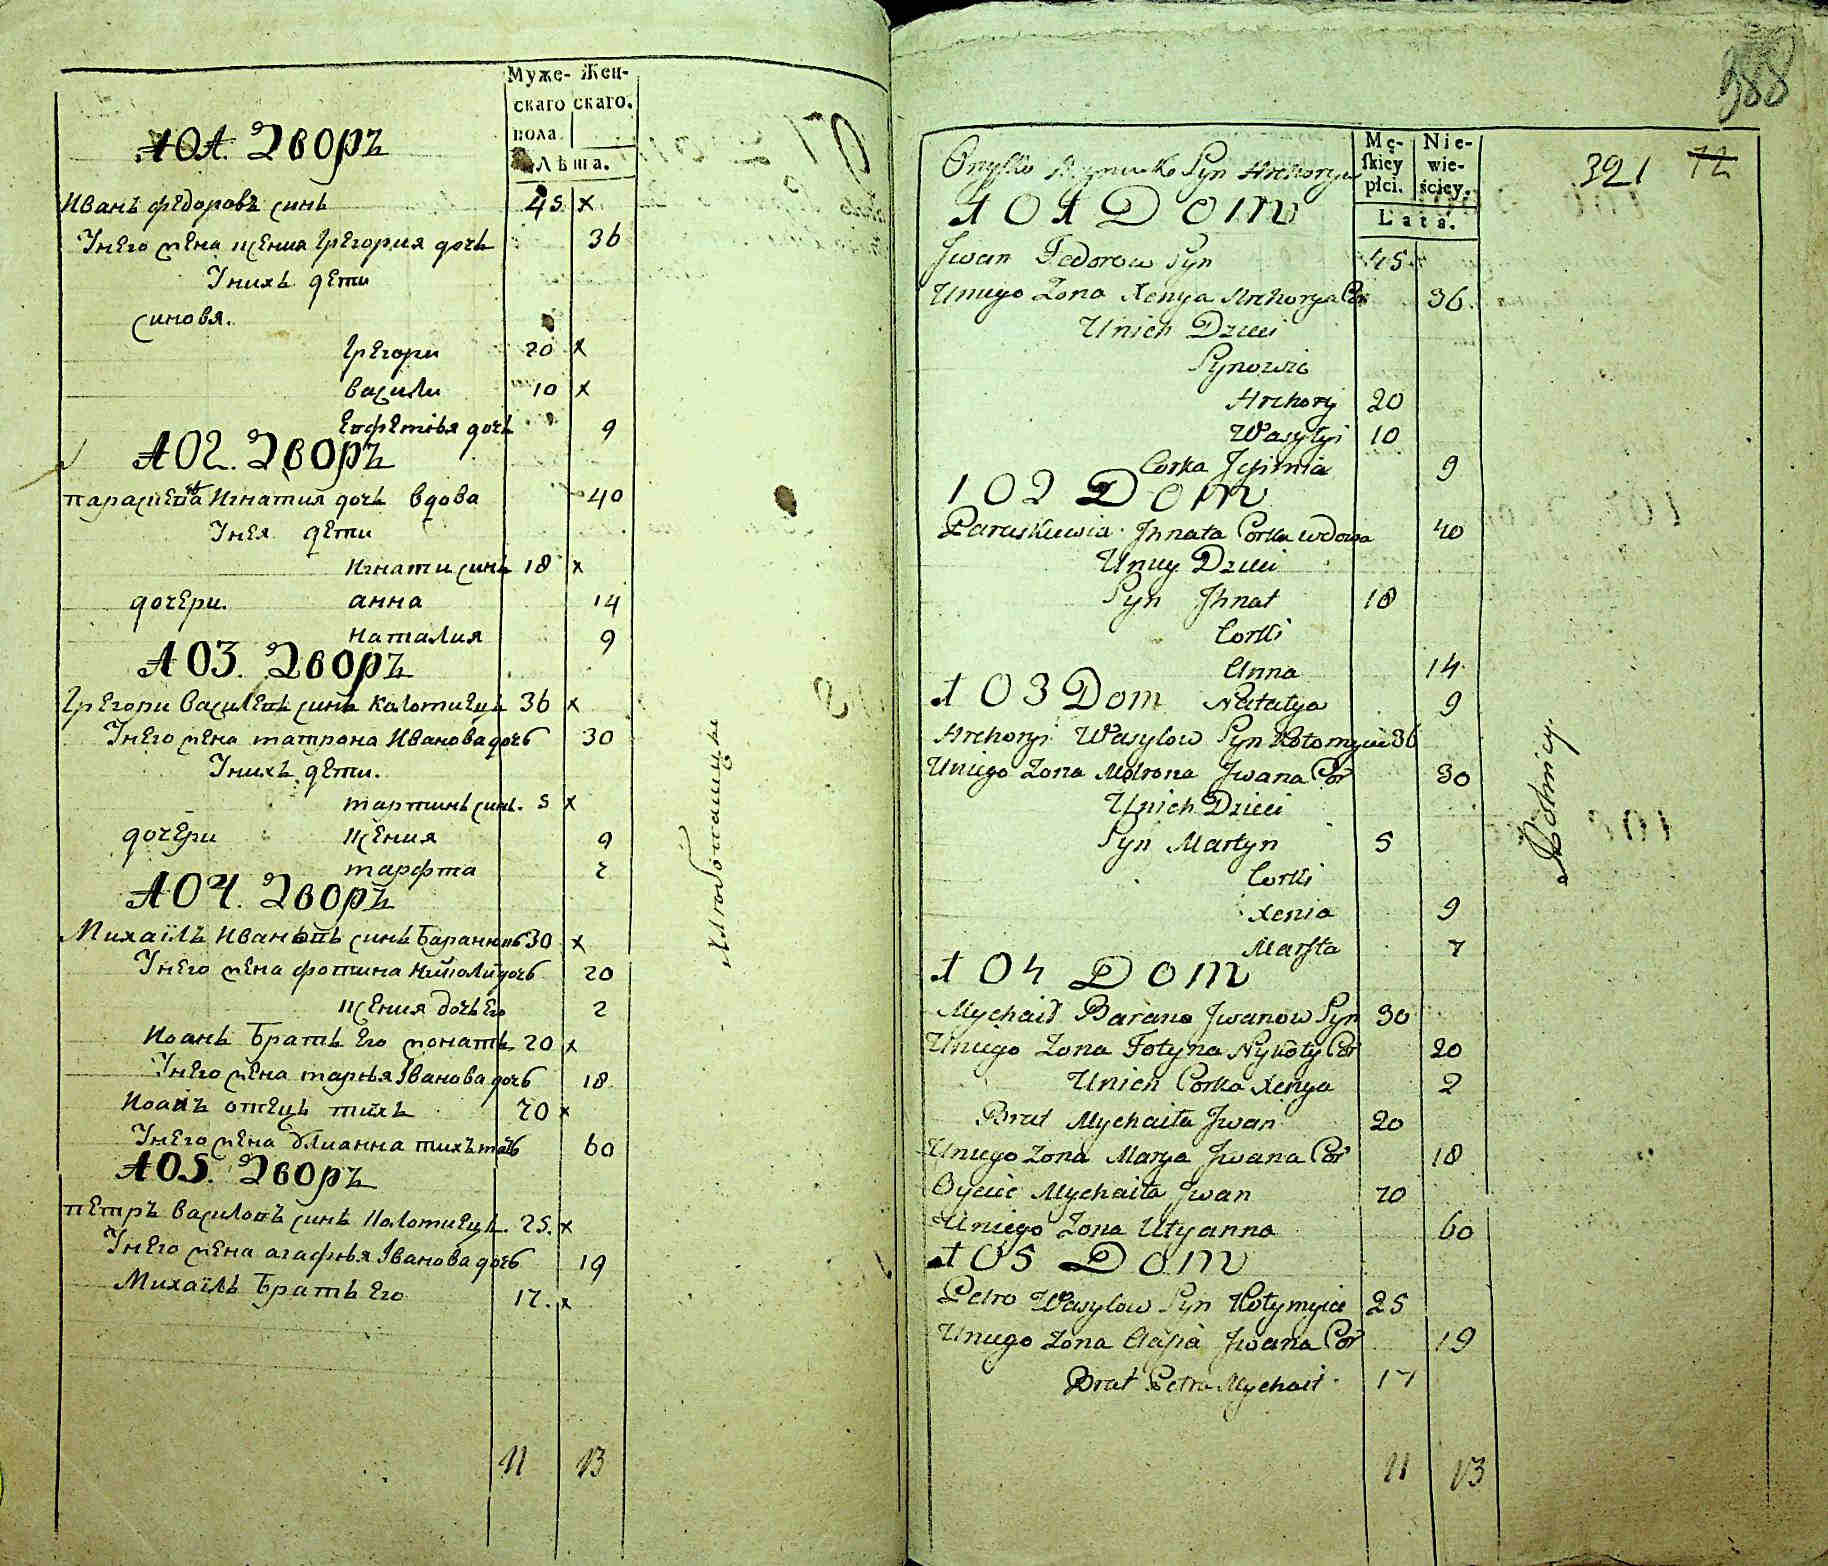 Муже- Жен-
скаго скаго.
пола.
Лѣта.
101. Дворъ
Иванъ Федоровъ синъ 45 x
Унего жена Ксения Григория дочь 36
Унихъ дети
синовя.
Григори 20 x
Васили 10 x
Евфемия дочь 9
102. Дворъ
Параскева Игнатия дочь вдова 40
Унея дети
Игнати синъ 18 x
дочери. анна 14
наталия 9
103. Дворъ
Григори Василевъ синъ Коломиецъ 36 x
Унего жена матрона Иванова дочь 30
Унихъ дети.
мартинъ синъ. 5 x
дочери Ксения 9
марфта
104. Дворъ
Михаїлъ Ивановъ синъ Баранновъ 30 x
Унего жена фотина Николи дочь 20
Ксения дочь Его 2
Иоанъ Братъ Его жонатъ 20 x
Унего жена маръя Іванова дочь 18
Иоанъ отецъ тихъ 70 x
Унего жена Улианна тихъ мать 60
105. Дворъ
Петръ Василовъ синъ Коломиецъ 25. x
Унего жена агафъя Іванова дочь 19
Михаїлъ Братъ Его 17. x
11 13
388
Mę-skiey płci. Nie-wie-ściey.
Lata.
321 72
Onysko Syn Hrehorya
101 Dom
Jwan Fedorow Syn 45
Uniego Zona Xenya Hrehorya Cor 36
Unich Dzieci
Synowie
Hrehory 20
Wasylyi 10
Corka Jefimia 9
102 Dom
Paraskiewia Jhnata Corka wdowa 40
Uniey Dzieci
Syn Jhnat 18
Corki
Anna 14
103 Dom Natalya 9
Hrehoryi Wasylow Syn Kołomyiec 36
Uniego Zona Motrona Jwana Cor 30
Unich Dzieci
Syn Martyn 5
Corki
Xenia 9
Marfta 7
104 Dom
Mychaił Barano Jwanow Syn 30
Uniego Zona Fotyna Nykoły Cor 20
Unich Corka Xenya 2
Brat Mychaiła Jwan 20
Uniego Zona Marya Jwana Cor 18
Oyciec Mychaiła Jwan 70
Uniego Zona Ulyanna 60
105 Dom
Petro Wasylow Syn Kołymyiec 25
Uniego Zona Ahafia Jwana Cor 19
Brat Petra Mychaił 17
11 13